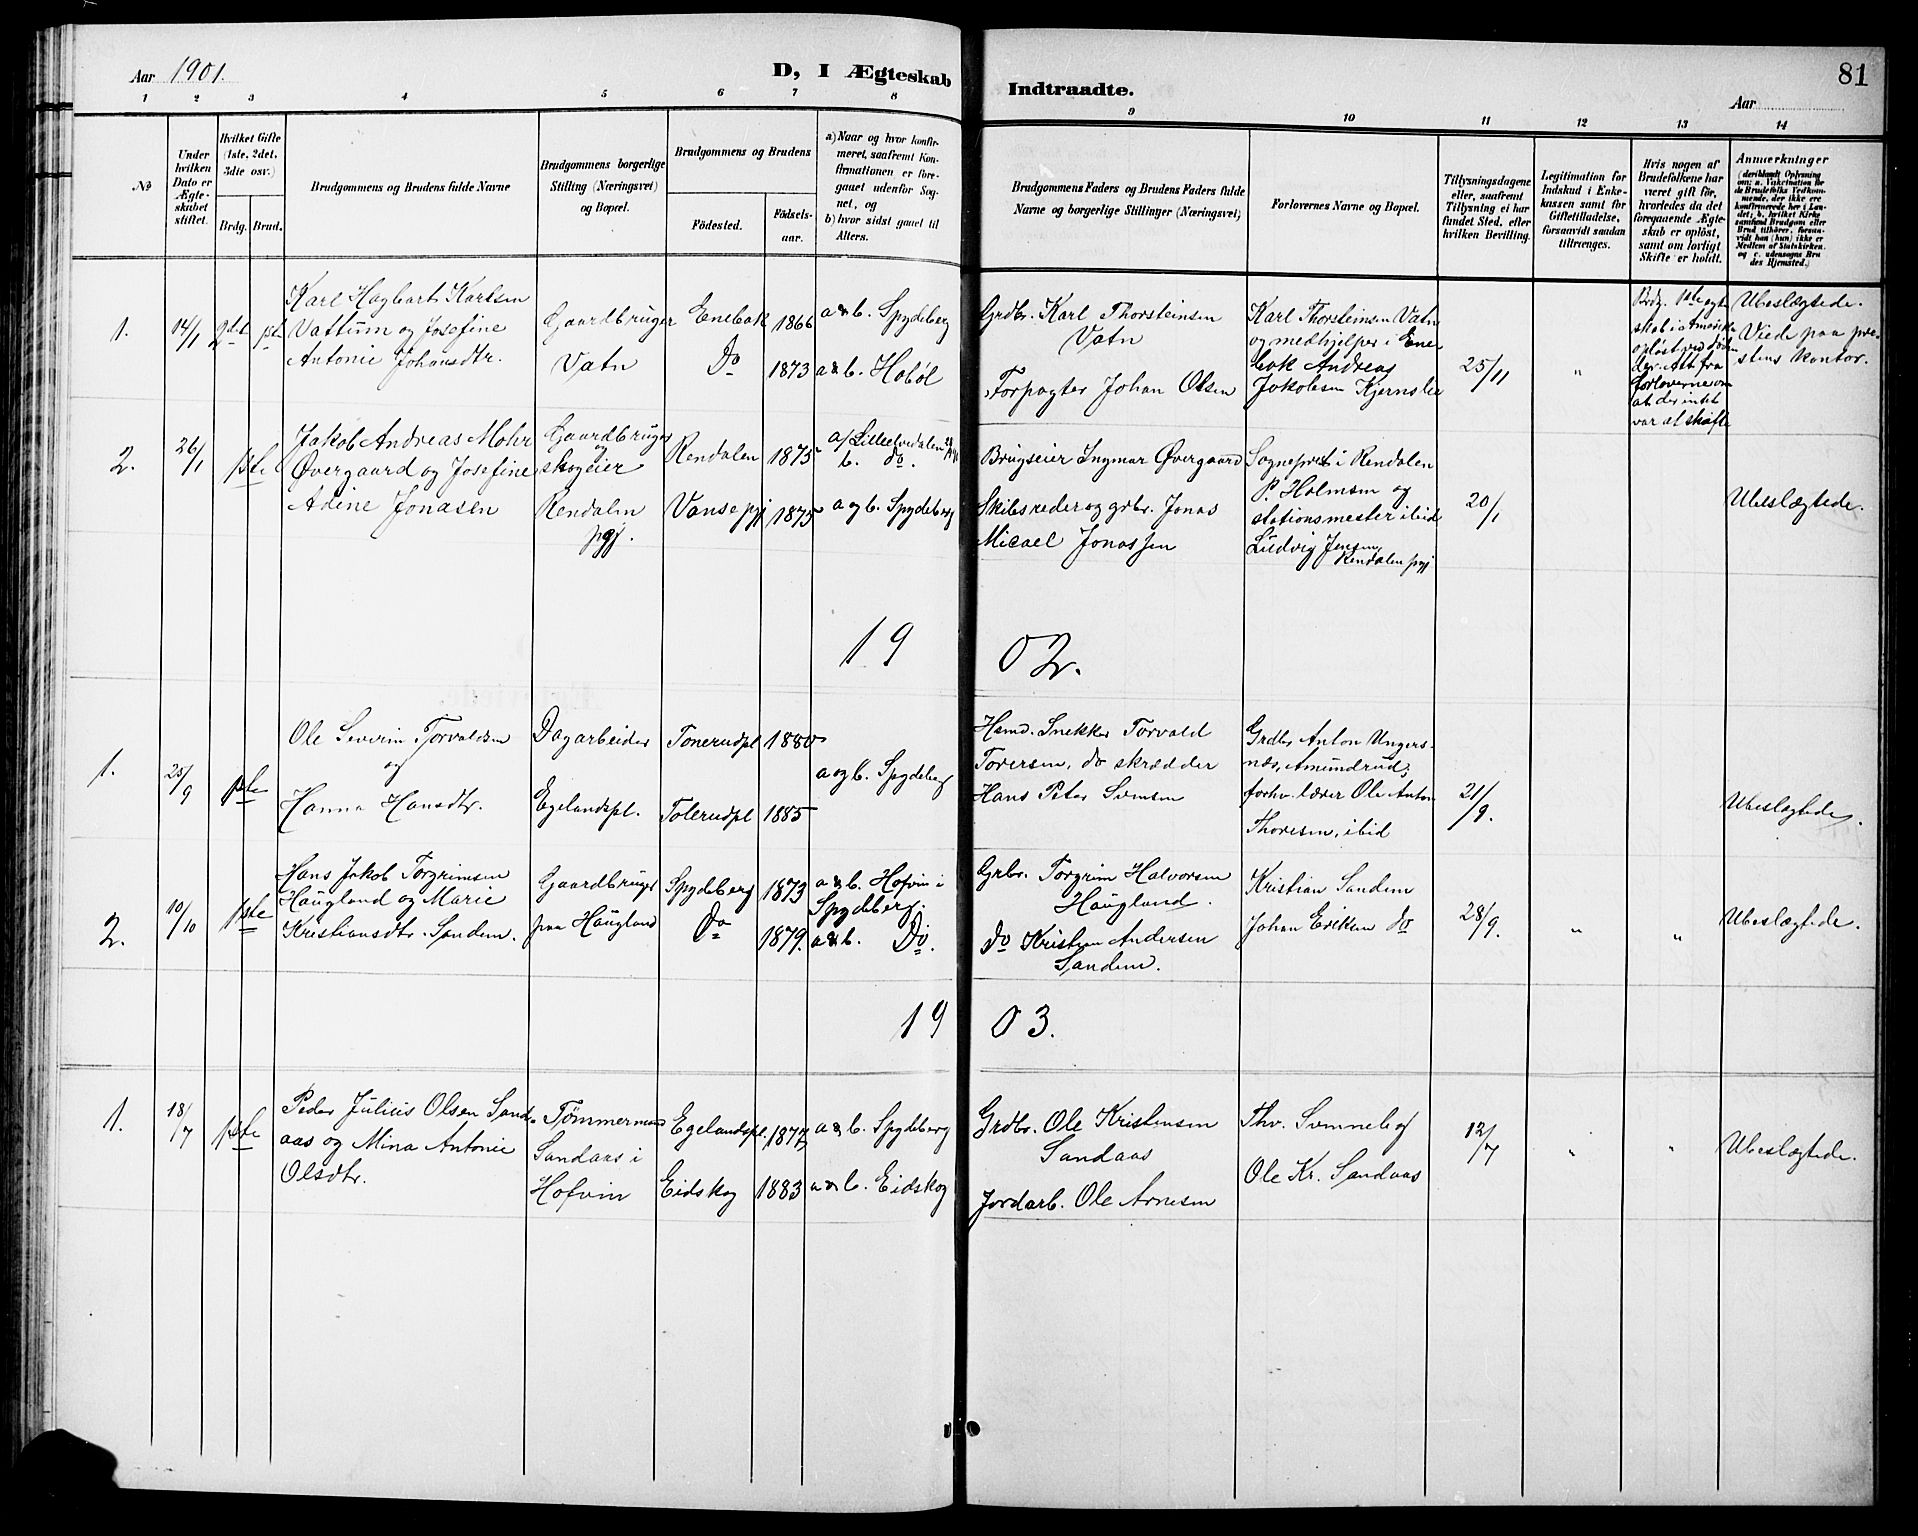 Aar 1901.
D, I Ægteskab
Indtraadte.
Aar
81
1 2 3 4 5 6 7 8 9 10 11 12 13 14
No
Under hvilken Dato er Ægteskabet stiftet.
Hvilket Gifte (1ste, 2det, 3dte osv.)
Brdg. Brud.
Brudgommens og Brudens fulde Navne
Brudgommens borgerlige Stilling (Næringsvei) og Bopæl.
Brudgommens og Brudens
Fødested.
Fødselsaar.
a) Naar og hvor konfirmeret, saafremt Konfirmationen er foregaaet udenfor Sognet, og
b) hvor sidst gaaet til Alters.
Brudgommens Faders og Brudens Faders fulde Navne og borgerlige Stillinger (Næringsvei)
Forlovernes Navne og Bopæl.
Tillysningsdagene eller, saafremt Tillysning ei har fundet Sted, efter hvilken Bevilling.
Legitimation for Indskud i Enkekassen samt for Giftetilladelse, forsaavidt saadan tiltrænges.
Hvis nogen af Brudefolkene har været gift før, hvorledes da det foregaaende Ægteskab er opløst, samt om lovligt Skifte er holdt.
Anmærkninger
(deriblandt Oplysning om: a. Vakcination for de Brudefolks Vedkommende, der ikke ere konfirmerede her i Landet; b. hvilket Kirkesamfund Brudgom eller Brud tilhører, forsaavidt han (hun) ikke er Medlem af Statskirken, og c. udensogns Brudes Hjemsted.)
1. 14/1 2det 1ste
Karl Hagbart Karlsen
Vattum og Josefine
Antonie Johansdtr.
Gaardbruger
Vatn
Enebak 1866 a & b. Spydeberg
Do 1873 a & b. Hobøl
Grdbr. Karl Thorsteinsen
Vatn
Forpagter Johan Olsen
Karl Thorsteinsen Vatn
og medhjelper i Ene
bak Andreas
Jakobsen Kjernslie
25/11
"
Brdg. 1ste egte
skab i Amerika
opløst ved døden
Att fra
forloverne om
at der intet
var at skifte
Ubeslægtede.
Viede paa pre
stens kontor.
2. 26/1 1ste
Jakob Andreas Mohr
Øvergaard og Josefine
Adine Jonasen
Gaardbruger
og
skogeier
Rendalen
pgj.
Rendalen 1875 a/ Lilleelvedalen
b. do.
Vanse pgj 1875 a og b. Spydeberg
Brugseier Ingmar Øvergaard
Skibsreder og grbr. Jonas
Micael Jonassen
Sognepret i Rendalen
P. Holmsen og
stationsmester ibid
Ludvig Jensen,
Rendalen pgj
20/1
Ubeslægtede.
1902.
1. 25/9 1ste
Ole Severin Torvaldsen
og
Hanna Hansdtr.
Dagarbeider
Egelandspl.
Tonerudpl 1880
Tolerudpl 1885
a og b. Spydeberg
Hsmd. Snekker Torvald
Toversen, do skrædder
Hans Peter Svensen
Grdbr Anton Ungers-
næs, Amundrud;
forhv. lærer Ole Anton
Thoresen, ibid
21/9.
Ubeslægtede.
2. 10/10 1ste
Hans Jakob Torgrimsen
Haugland og Marie
Kristiansdtr. Sandem.
Gaardbruger
paa Haugland
Spydeberg 1873 a & b. Hofvin i
Spydeberg.
Do 1879. a & b. Do.
Grbr. Torgrim Halvorsen
Haugland.
do Kristian Andersen
Sandem.
Kristian Sandem
Johan Eriksen do
28/9.
" "
Ubeslægtede.
1903.
1. 18/7 1ste
Peder Julius Olsen Sand-
aas og Mina Antonie
Olsdtr.
Tømmermand
Sandaas i
Hofvin
Egelandspl. 1877 a & b. Spydeberg
Eidskog 1883 a & b. Eidskog
Grdbr. Ole Kristensen
Sandaas
Jordarb. Ole Arnesen
Thv. Svenneby
Ole Kr. Sandaas
12/7
" "
Ubeslægtede.